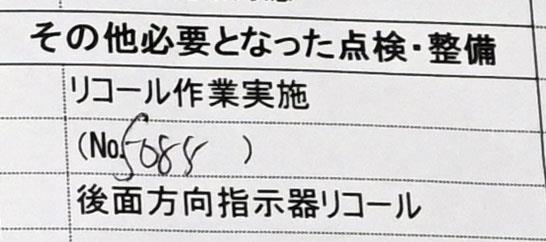 その他必要となった点検・整備
リコール作業実施
(No.5085 )
後面方向指示器リコール